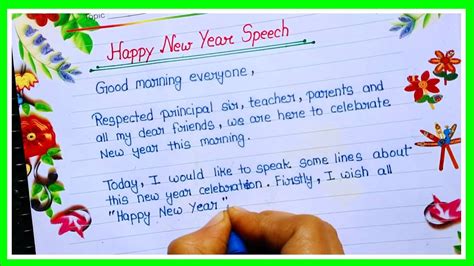 Topic
Happy New Year Speech
Good morning everyone,
Respected principal sir, teacher, parents and
all my dear friends, we are here to celebrate
New year this morning.
Today, I would like to speak some lines about
this new year celebration. Firstly, I wish all
"Happy New Year"